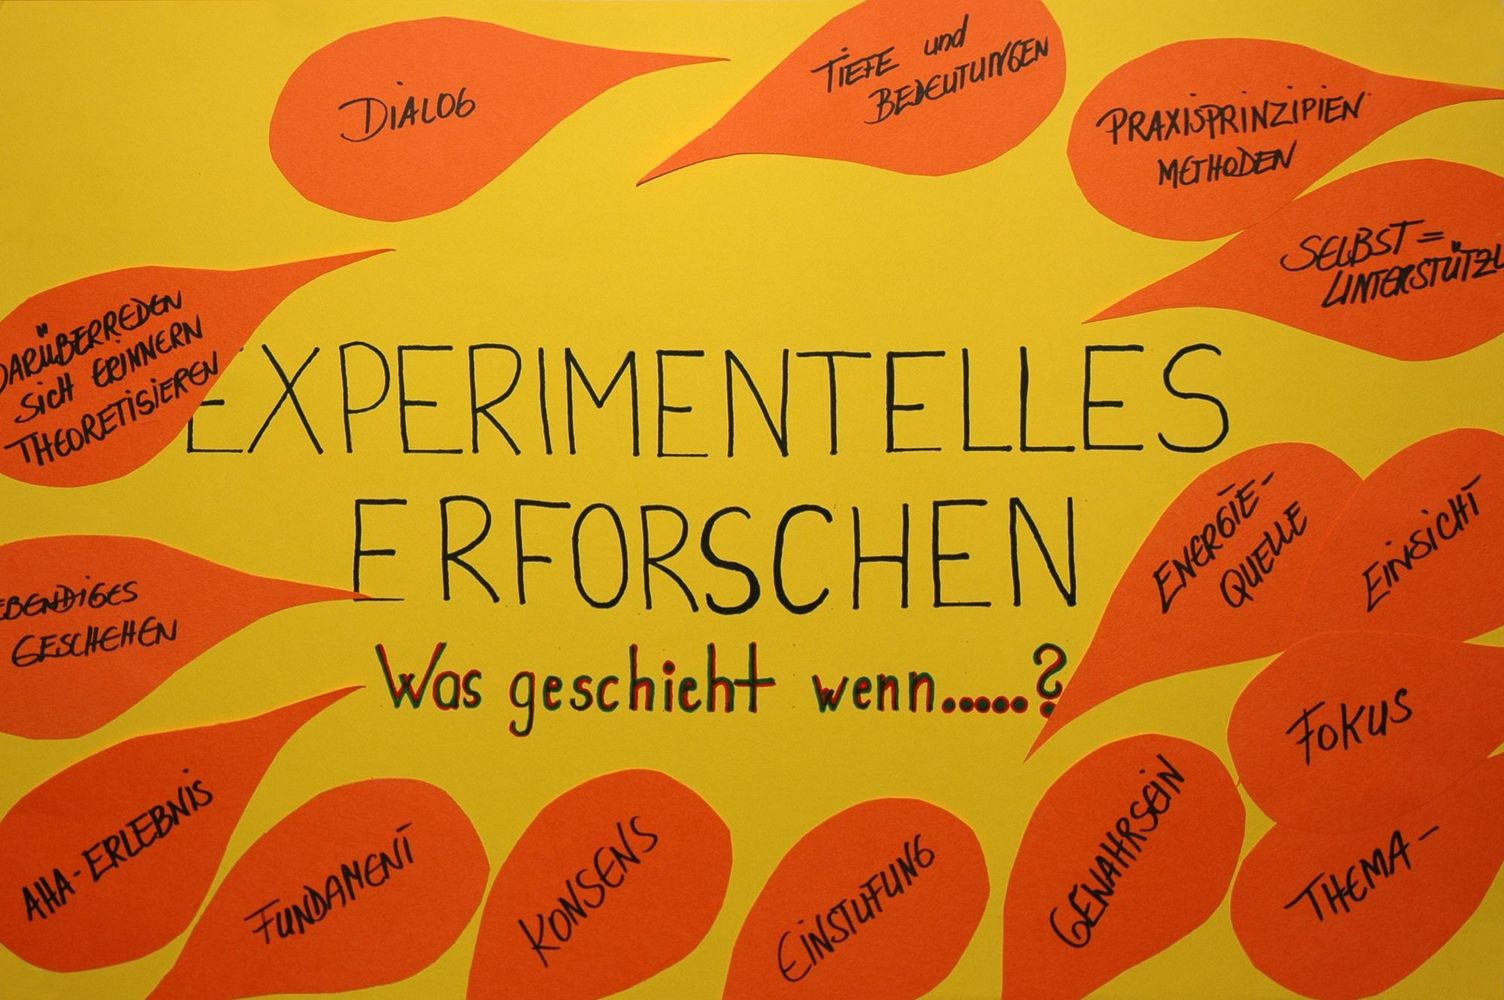 DIALOG
TIEFE und
BEDEUTUNGEN
PRAXISPRINZIPIEN
METHODEN
SELBST=
UNTERSTÜTZU
DARÜBERREDEN
SICH ERINNERN
THEORETISIEREN
EXPERIMENTELLES
ERFORSCHEN
Was geschieht wenn.....?
ENERGIE-
QUELLE
EINSICHT
EBENDIGES
GESCHEHEN
FOKUS
AHA-ERLEBNIS
FUNDAMENT
KONSENS
EINSTUFUNG
GEWAHRSEIN
THEMA-